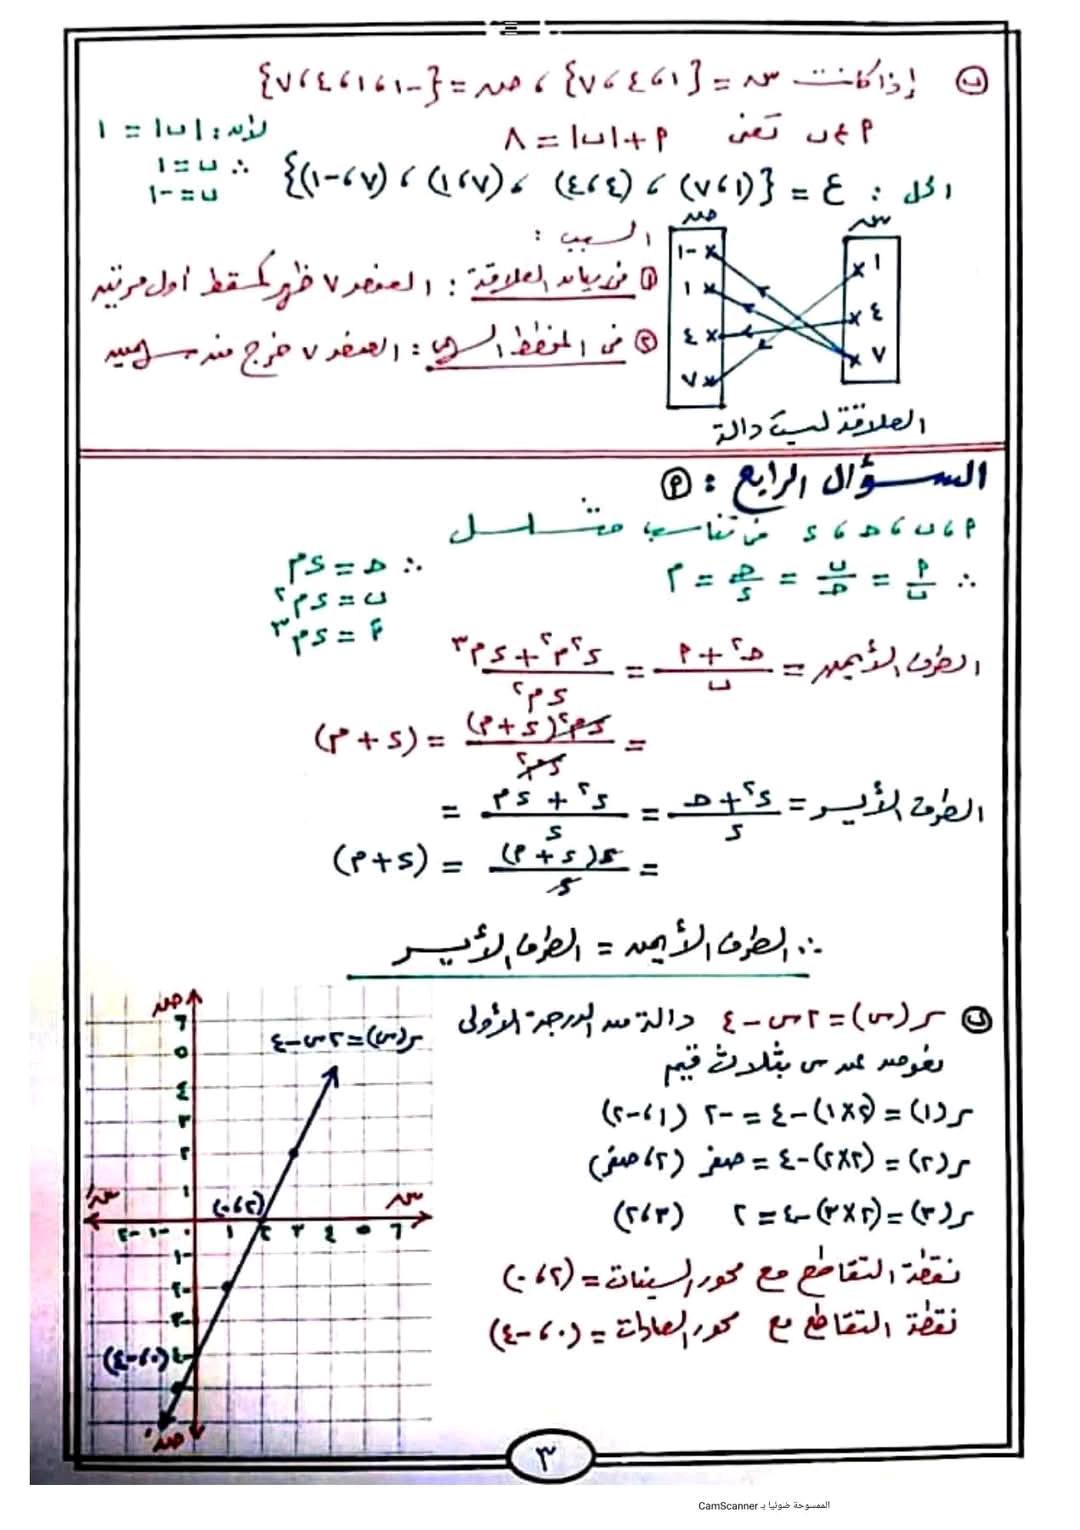 (ب) إذا كانت س = {١، ٤، ٧} ، ص = {-١، ١، ٤، ٧}
أ ع ب تعنى أ + |ب| = ٨
لأن: |ب| = ١
∴ ب = ١
ب = -١
الحل : ع = {(١، ٧) ، (٤، ٤) ، (٧، ١) ، (٧، -١)}
س
ص
١
٤
٧
-١
١
٤
٧
السبب :
(١) فى بيان العلاقة : العنصر ٧ ظهر كمسقط أول مرتين
(٢) فى المخطط السهمى : العنصر ٧ خرج منه سهمين
العلاقة ليست دالة
السؤال الرابع : (أ)
أ ، ب ، حـ ، د فى تناسب متسلسل
∴ أ/ب = ب/حـ = حـ/د = م
∴ حـ = د م
ب = د م٢
أ = د م٣
الطرف الأيمن = (حـ٢ + أ)/ب = (د٢ م٢ + د م٣)/(د م٢)
= د م٢ (د + م)/(د م٢) = (د + م)
الطرف الأيسر = (د٢ + حـ)/د = (د٢ + د م)/د =
= د (د + م)/د = (د + م)
∴ الطرف الأيمن = الطرف الأيسر
(ب) ر(س) = ٢س - ٤ دالة من الدرجة الأولى
نعوض عن س بثلاث قيم
ر(١) = (٢×١) - ٤ = -٢ (١، -٢)
ر(٢) = (٢×٢) - ٤ = صفر (٢، صفر)
ر(٣) = (٢×٣) - ٤ = ٢ (٣، ٢)
نقطة التقاطع مع محور السينات = (٢، ٠)
نقطة التقاطع مع محور الصادات = (٠، -٤)
ص
ر(س) = ٢س - ٤
٦
٥
٤
٣
٢
١
سَ
(٢، ٠)
س
-٢ -١ ٠ ١ ٢ ٣ ٤ ٥ ٦
-١
-٢
-٣
-٤
(٠، -٤)
صَ
٣
الممسوحة ضوئيا بـ CamScanner